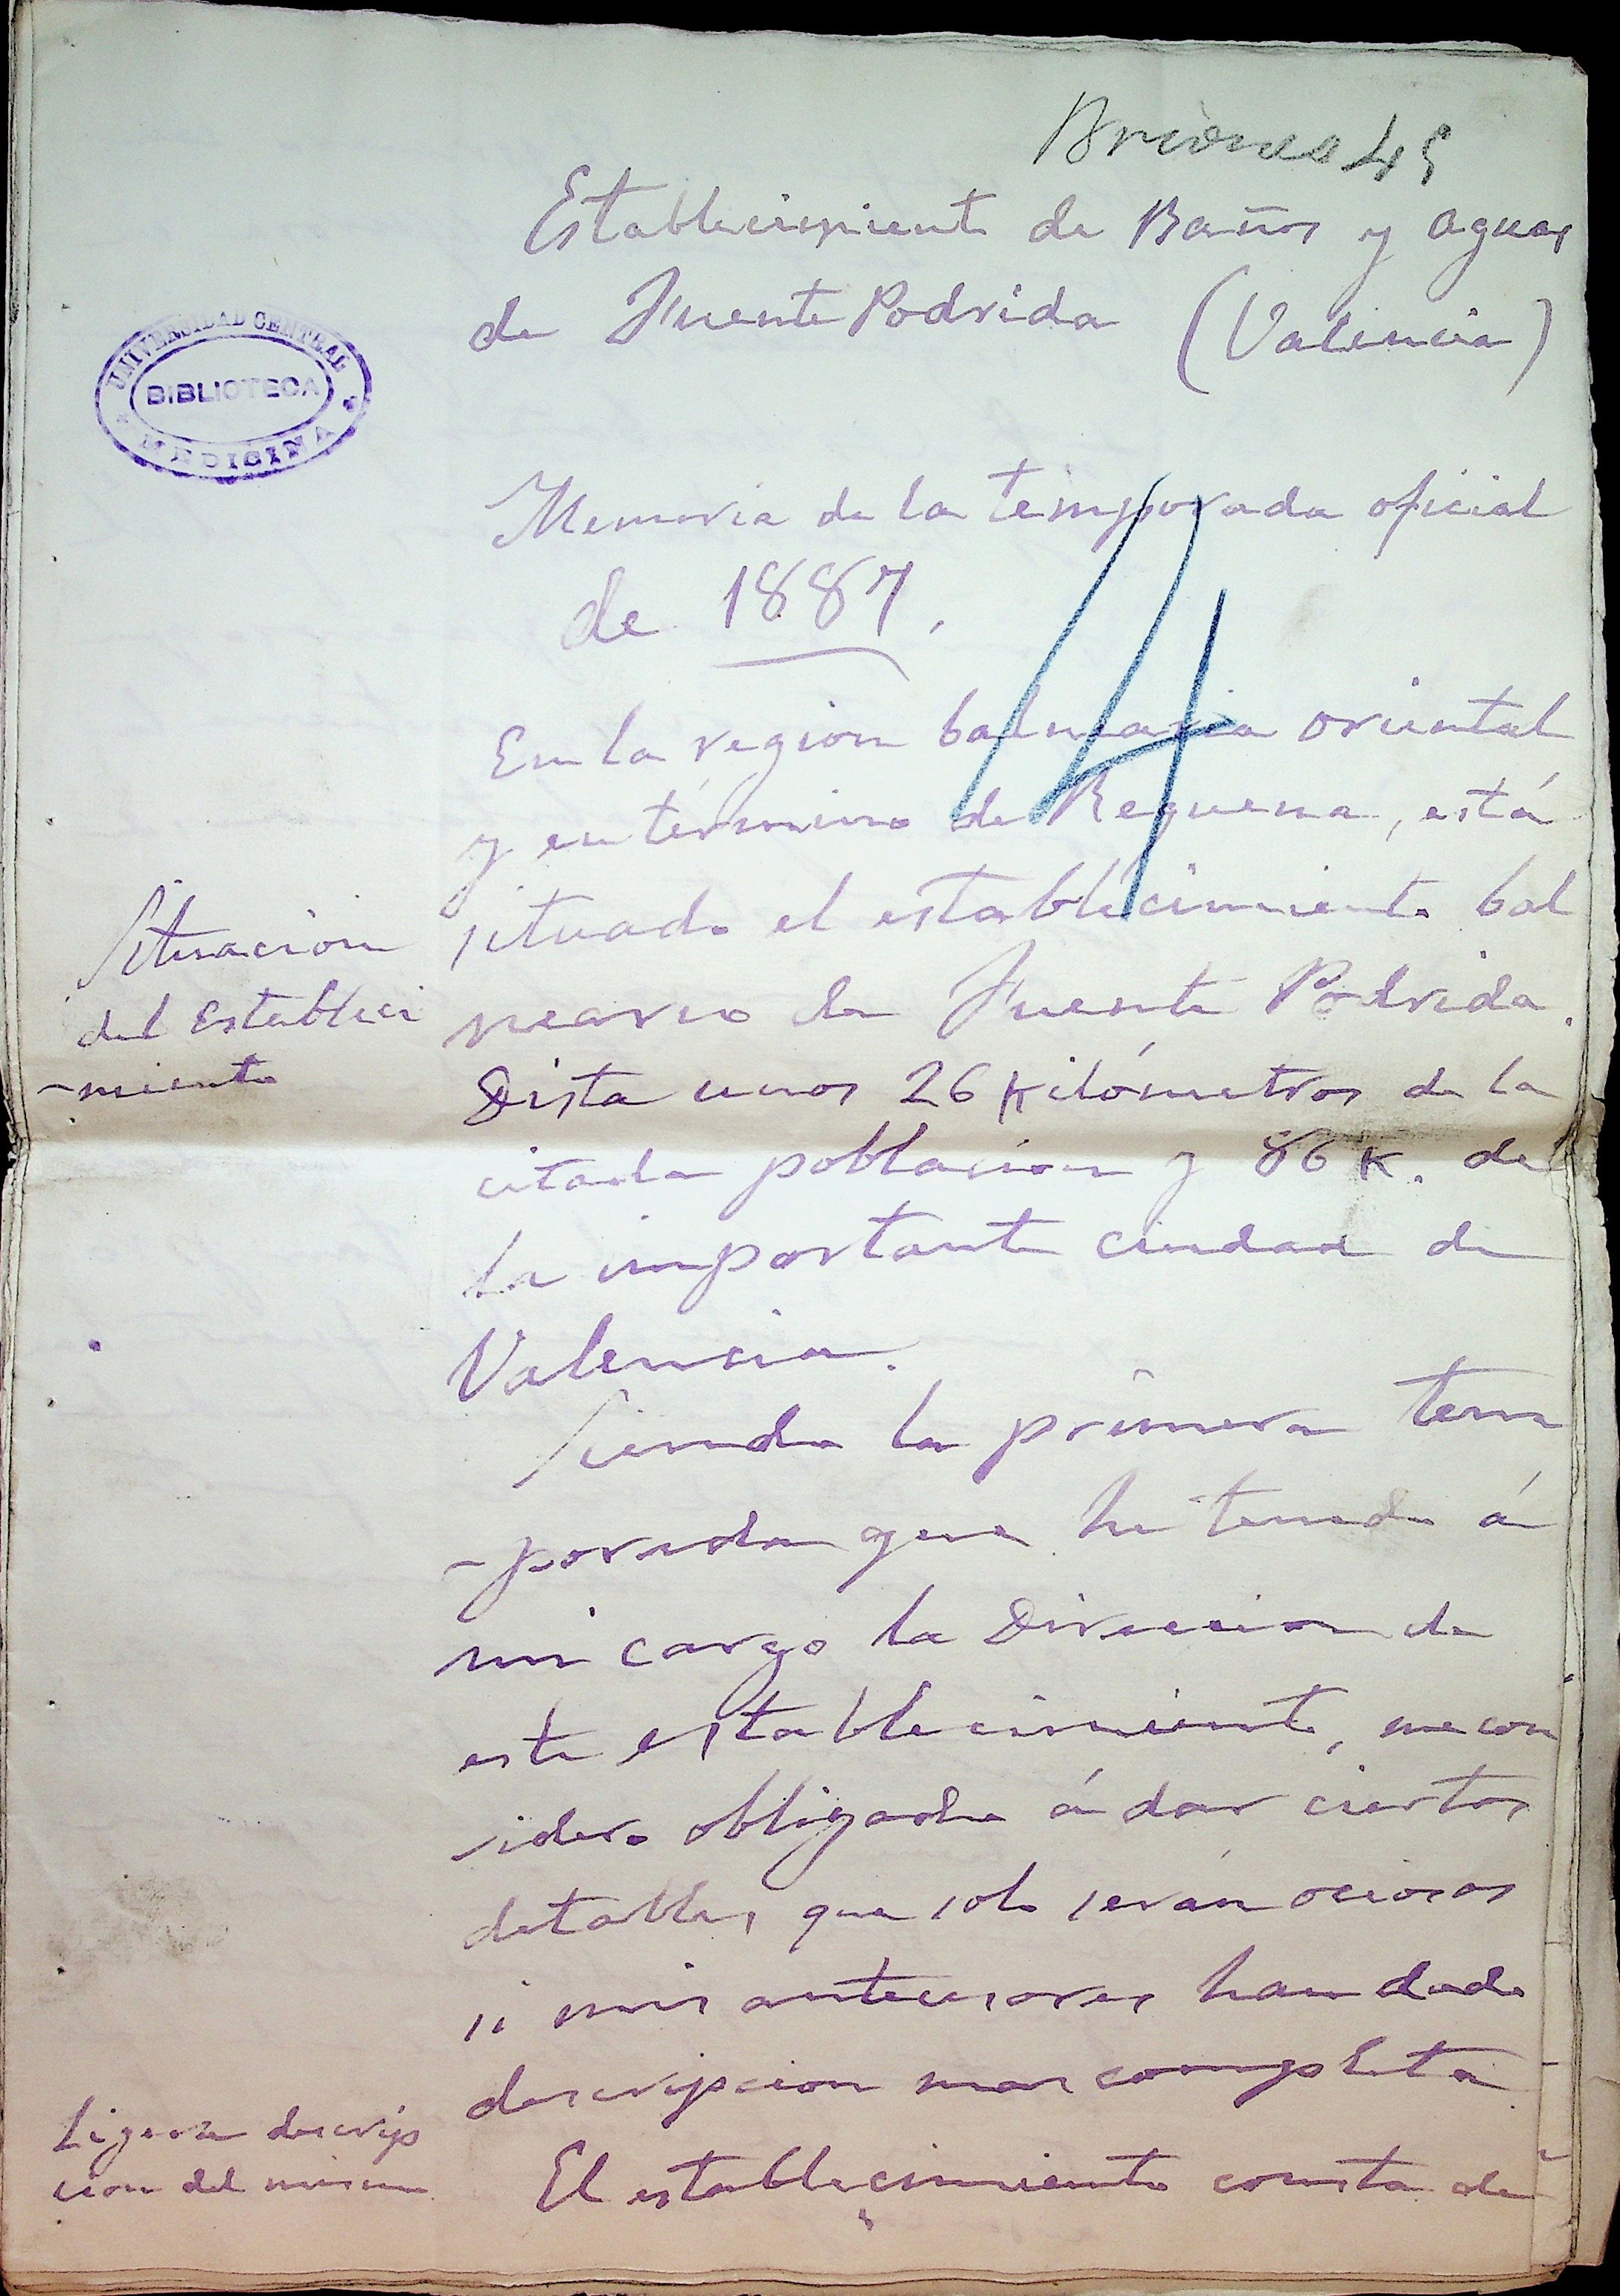 Briones 45
Establecimiento de Baños y aguas
de Fuente Podrida (Valencia)
UNIVERSIDAD CENTRAL
BIBLIOTECA
MEDICINA
Memoria de la temporada oficial
de 1887.
En la region balnearia oriental
y en término de Requena, está
Situacion
del Estableci
-miento
situado el establecimiento bal
neario de Fuente Podrida.
Dista unos 26 Kilómetros de la
citada poblacion y 86 K. de
la importante ciudad de
Valencia.
Siendo la primera tem
-porada que he tenido á
mi cargo la Direccion de
este establecimiento, me con
sidero obligado á dar ciertos
detalles, que solo serán ociosos
si mis antecesores han dado
descripcion mas completa
Ligera descrip
cion del mismo
El establecimiento consta de